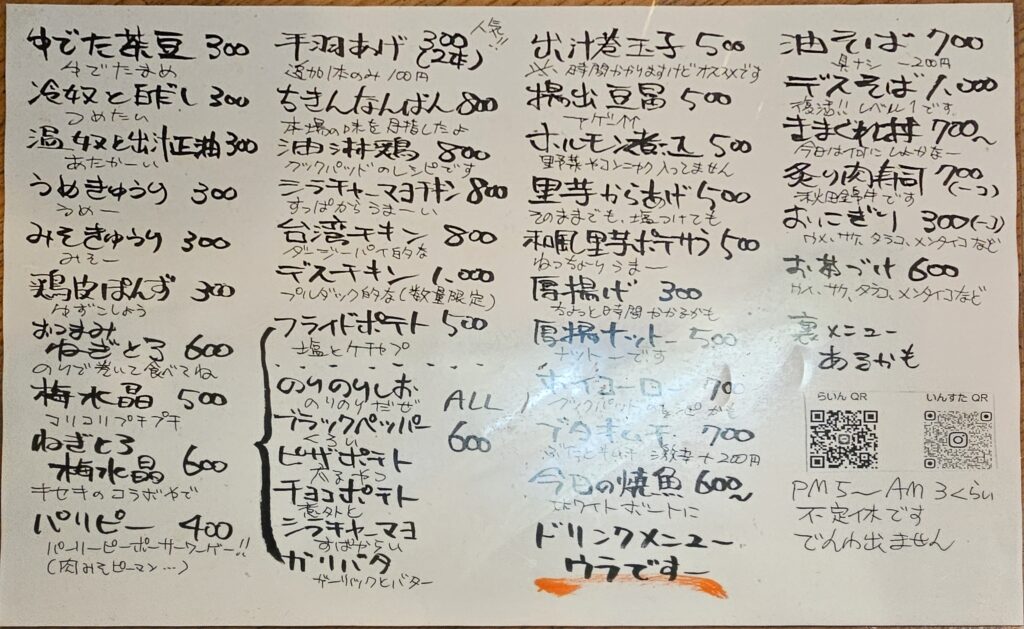 ゆでた茶豆 300
ゆでたまめ
冷奴と酢だし 300
つめたい
温奴と出汁正油 300
あたかーい
うめきゅうり 300
うめー
みそきゅうり 300
みそー
鶏皮ぽんず 300
ゆずこしょう
おつまみ
ねぎとろ 600
のりで巻いて食べてね
梅水晶 500
コリコリプチプチ
ねぎとろ
梅水晶 600
キセキのコラボやで
パリピー 400
パーリーピーポーサーワーゲー!!
(肉みそピーマン…)
手羽あげ 300(2本) 人気!!
追加1本のみ100円
ちきんなんばん 800
本場の味を目指したよ
油淋鶏 800
クックパッドのレシピです
シラチャーマヨチキン 800
すっぱからうまーい
台湾チキン 800
ダージーパイ的な
デスチキン 1.000
ブルダック的な(数量限定)
フライドポテト 500
塩とケチャプ
のりのりしお
のりのりだぜ
ALL 600
ブラックペッパー
くろい
ピザポテト
チョコポテト
意外と
シラチャーマヨ
すぱからい
ガリバタ
ガーリックとバター
出汁巻玉子 500
※時間かかりますけどオススメです
揚出豆冨 500
アゲ
ホルモン煮込 500
野菜やコンニャク入ってません
里芋からあげ 500
そのままでも、塩つけても
和風里芋ポテサラ 500
ねっちょりうまー
厚揚げ 300
ちょっと時間かかるかも
厚揚ナットー 500
ナットーです
ホイコーロー 70
クックパッドのレシピかも
ブタキムチ 700
ぶたとキムチ 激辛+200円
今日の焼魚 600～
ホワイトボードに
ドリンクメニュー
ウラですー
油そば 700
具ナシ －200円
デスそば 1.000
復活!! レベル1です
きまぐれ丼 700～
今日は何にしよかなー
炙り肉寿司 700(一コ)
秋田錦牛です
おにぎり 300(一コ)
ウメ、サケ、タラコ、メンタイコなど
お茶づけ 600
ウメ、サケ、タラコ、メンタイコなど
裏メニュー
あるかも
らいん QR
いんすた QR
PM5～AM3くらい
不定休です
でんわ出ません